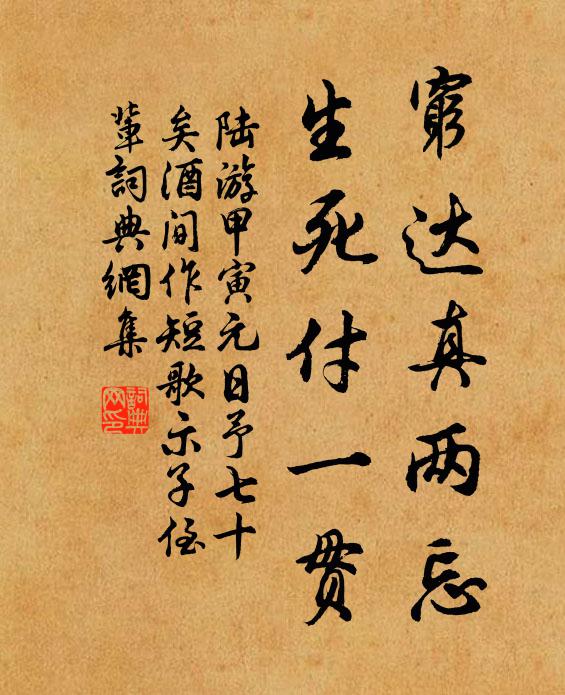 窮达真两忘
生死付一贯
陆游甲寅元日予七十
矣酒间作短歌示子侄
辈詞典網集
詞典
网印